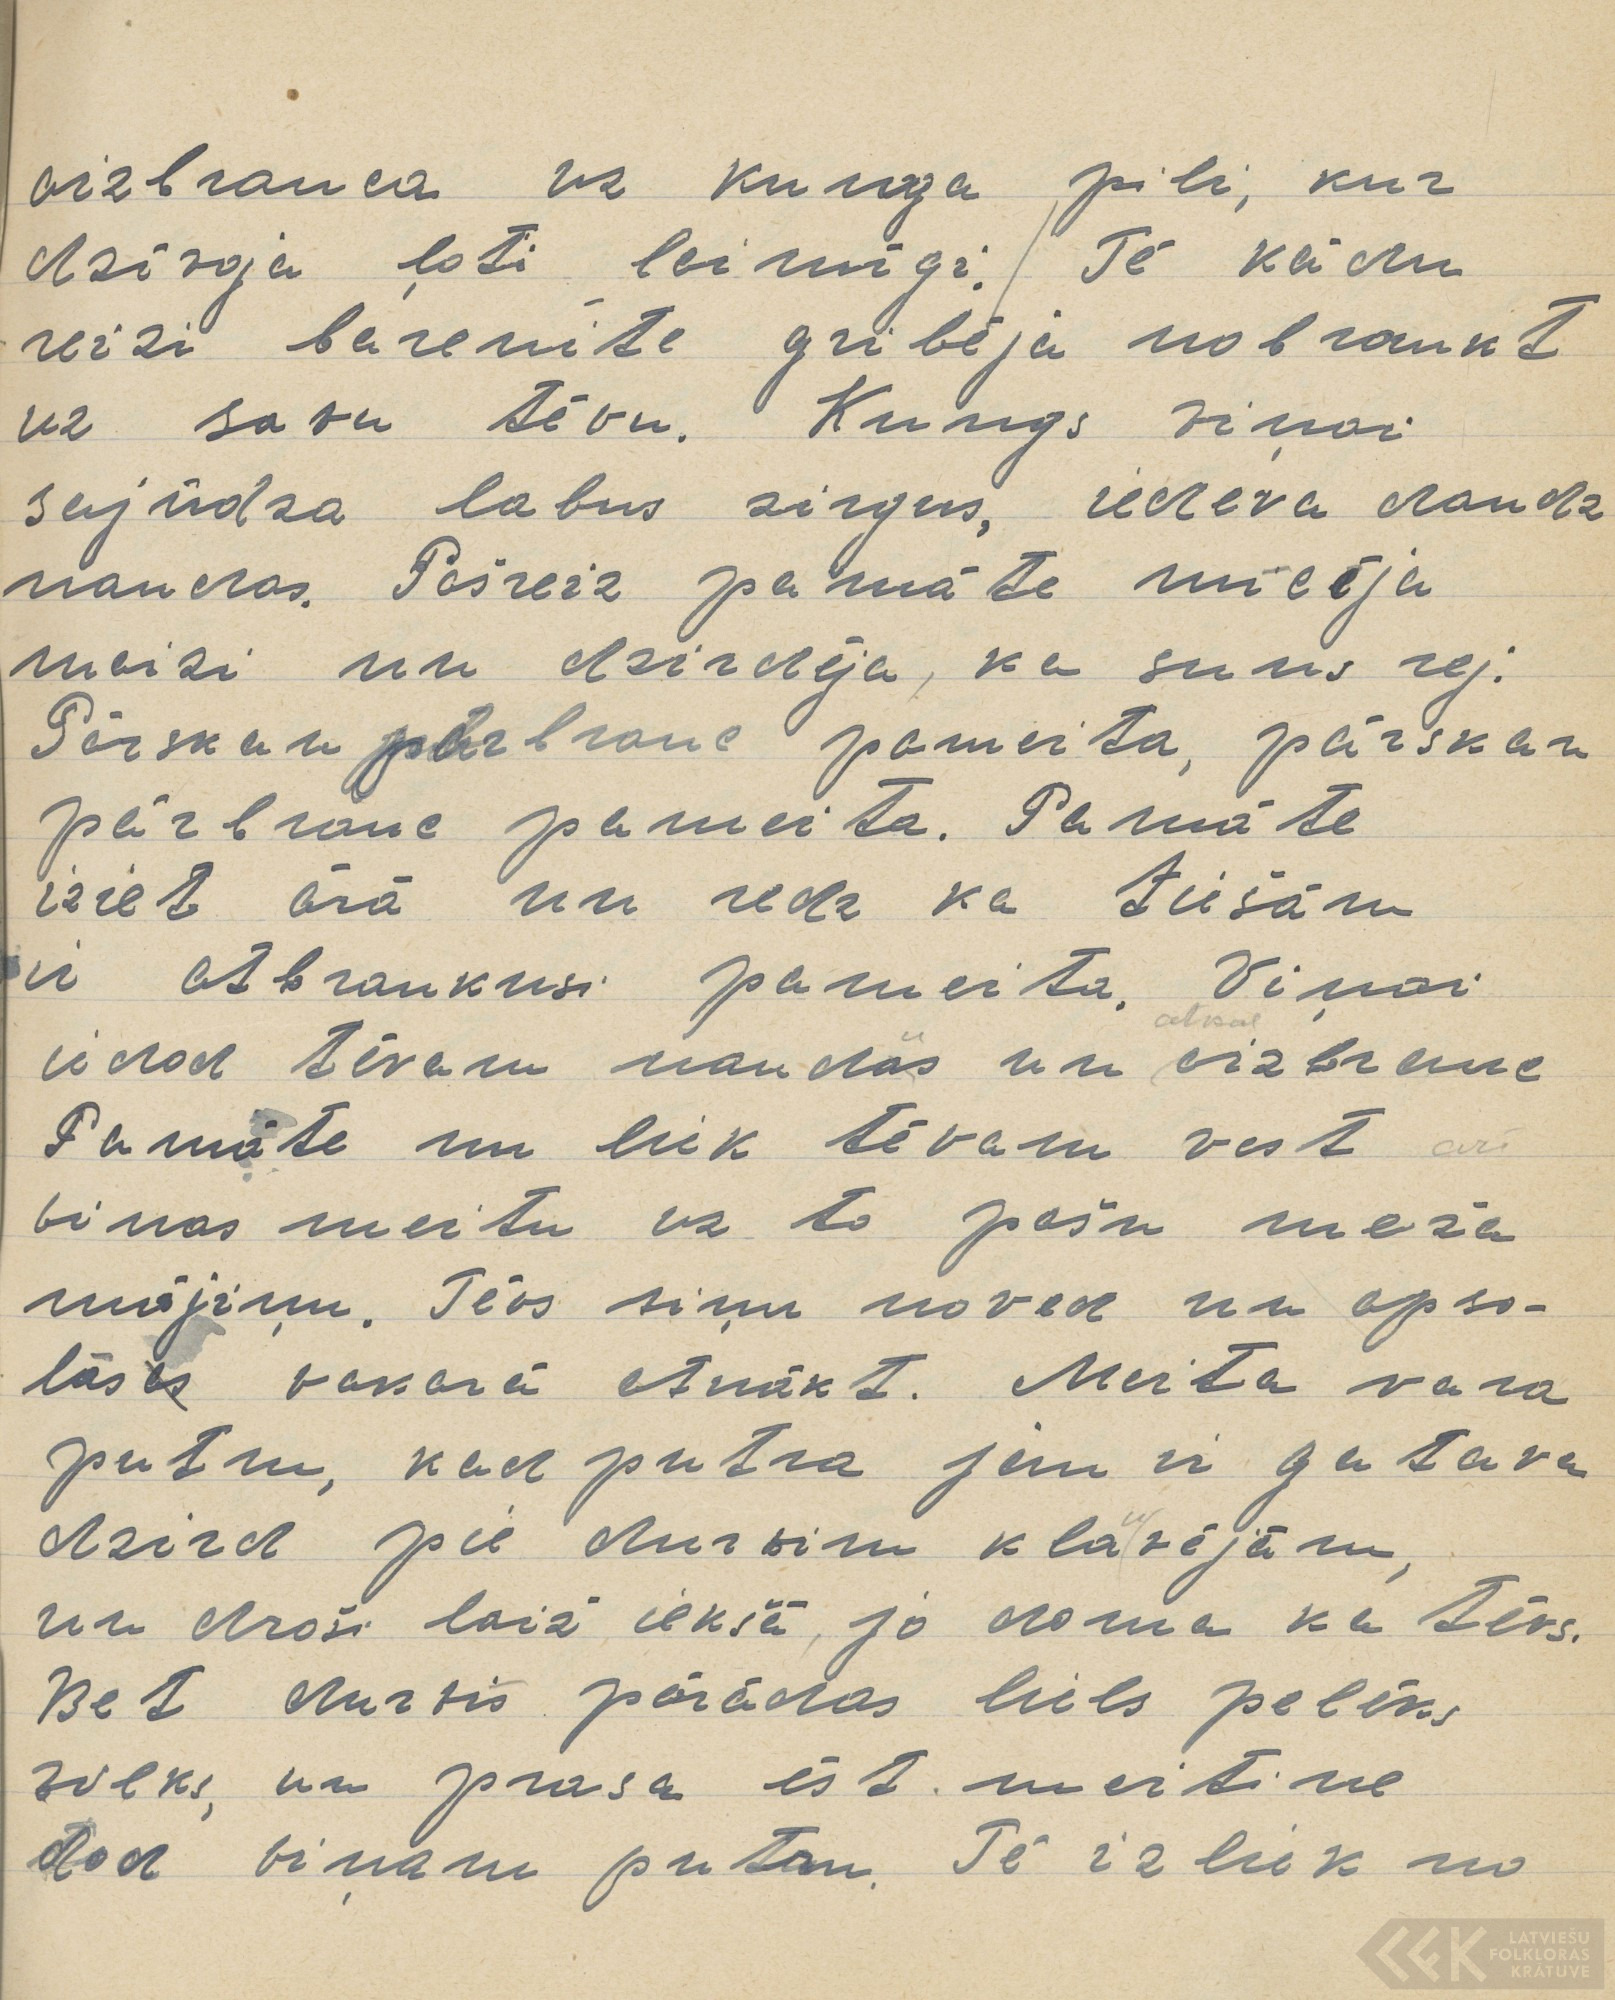 aizbrauca uz kunga pili, kur
dzīvoja ļoti laimīgi. Tē kādu
reizi bārenīte gribēja nobraukt
uz savu tēvu. Kungs viņai
sajūdza labus zirgus, iedeva daudz
naudas. Pašreiz pamāte mīcīja
maizi un dzirdēja, ka suns rej.
Pārskan pārbrauc pameita, pārskan
pārbrauc pameita. Pamāte
iziet ārā un redz ka tiešām
ir atbraukusi pameita. Viņai
atkal
iedod tēvam naudas un aizbrauc
Pamāte nu liek tēvam vest arī
viņas meitu uz to pašu meža
mājiņu. Tēvs viņu noved un apso-
lās vakarā atnākt. Meita vāra
putru, kad putra jau ir gatava
dzird pie durvim klauvējam,
un droši laiž iekšā, jo doma ka tēvs.
Bet durvis parādas liels pelēks
vilks, un prasa ēst. meitine
dod viņam putru. Tē izliek no
LATVIEŠU
FOLKLORAS
KRĀTUVE